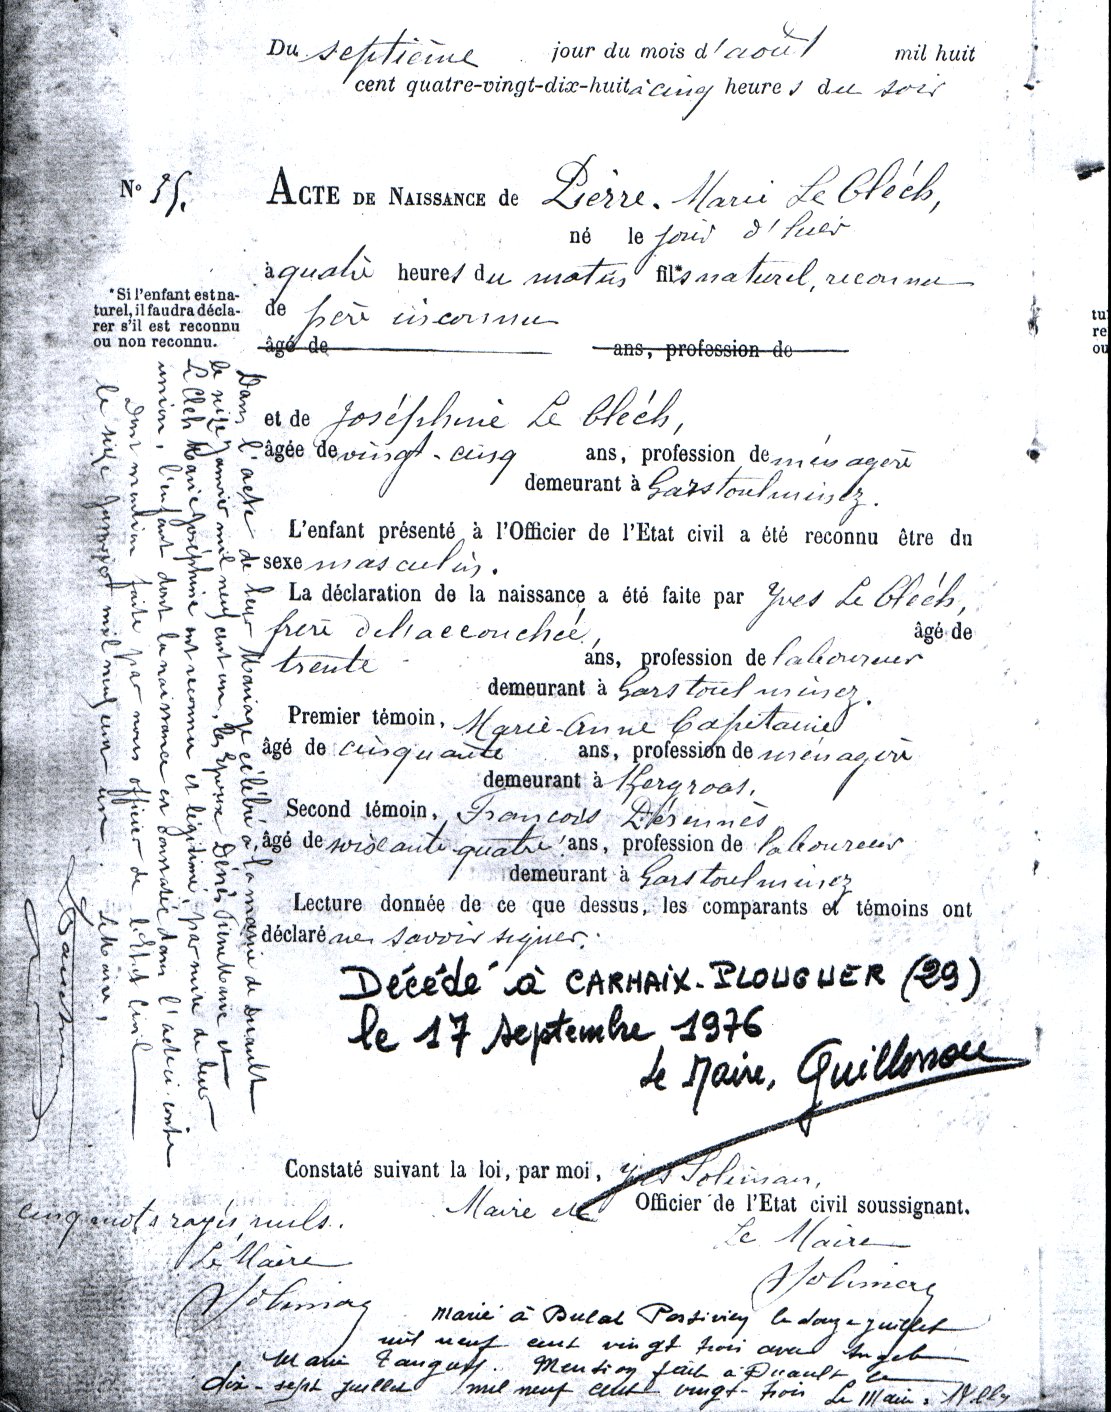 Du septième jour du mois d'août mil huit
cent quatre-vingt-dix-huit à cinq heures du soir
N° 35.
ACTE DE NAISSANCE de Pierre-Marie Le Cléch,
né le jour d'hier
à quatre heures du matin fils* naturel, reconnu
de père inconnu
âgé de ans, profession de
*Si l'enfant est na-
turel, il faudra décla-
rer s'il est reconnu
ou non reconnu.
et de Joséphine Le Cléch,
âgée de vingt-cinq ans, profession de ménagère
demeurant à Garstoulminez.
L'enfant présenté à l'Officier de l'Etat civil a été reconnu être du
sexe masculin.
La déclaration de la naissance a été faite par Yves Le Cléch,
frère de l'accouchée, âgé de
trente ans, profession de laboureur
demeurant à Garstoulminez.
Premier témoin, Marie-Anne Capitaine
âgé de cinquante ans, profession de ménagère
demeurant à Kergroas.
Second témoin, François Dérennès
âgé de soixante quatre ans, profession de laboureur
demeurant à Garstoulminez
Lecture donnée de ce que dessus, les comparants et témoins ont
déclaré ne savoir signer.
Dans l'acte de leur Mariage célébré à la mairie de Duault
le seize Janvier mil neuf cent un, les Epoux Dénès Pierre Marie et
Le Cléch Marie Joséphine ont reconnu et légitimé, par suite de leur
union, l'enfant dont la naissance est constatée dans l'acte ci-contre
Dont mention faite par nous officier de l'Etat Civil
le seize Janvier mil neuf cent un. Le Maire,
Décédé à CARHAIX-PLOUGUER (29)
le 17 septembre 1976
Le Maire,
Constaté suivant la loi, par moi, Yves Soliman,
Maire et Officier de l'Etat civil soussignant.
cinq mots rayés nuls.
Le Maire
Soliman
Le Maire
Soliman
Marié à Bulat Pestivien le douze juillet
mil neuf cent vingt trois avec Angele
Marie Tanguy. Mention fait à Duault le
dix-sept juillet mil neuf cent vingt-trois Le Maire:
tu
re
ou